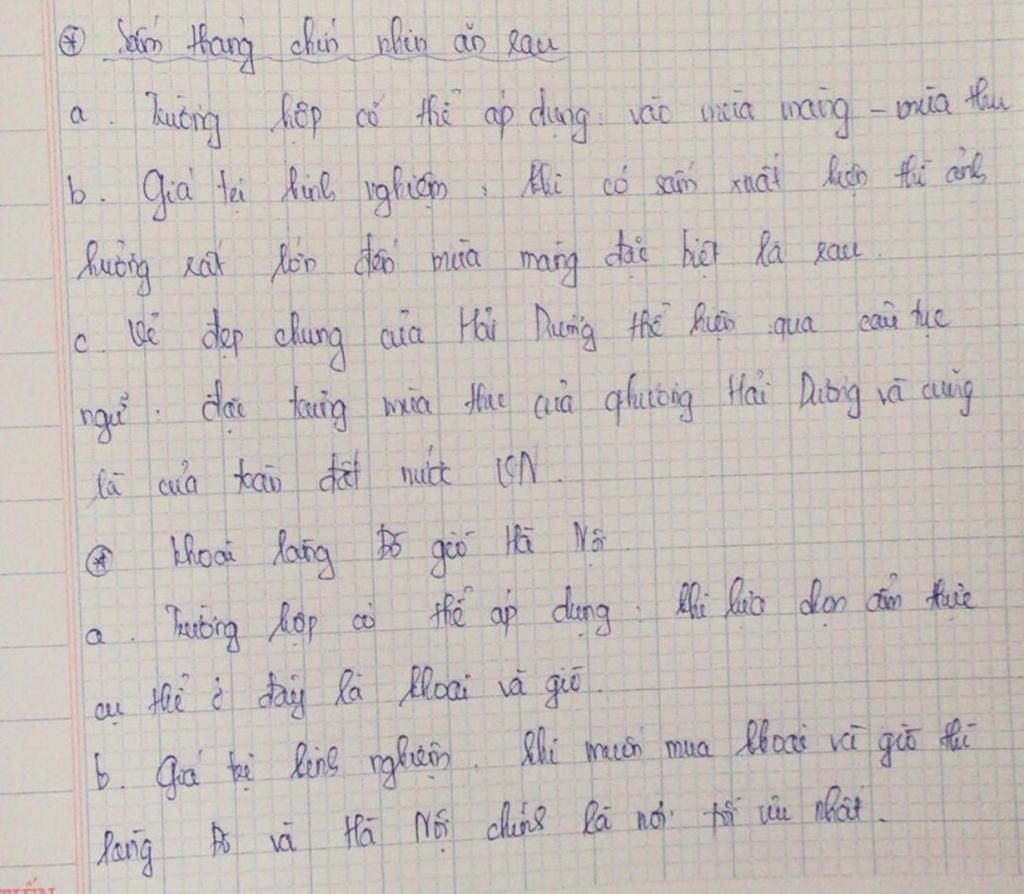 * Sấm tháng chín nhịn ăn rau
a. Trường hợp có thể áp dụng: vào mùa màng - mùa thu
b. Giá trị kinh nghiệm: khi có sấm xuất hiện thì ảnh
hưởng rất lớn đến mùa màng đặc biệt là rau.
c. Vẻ đẹp chung của Hải Dương thể hiện qua câu tục
ngữ: đặc trưng mùa thu của phương Hải Dương và cũng
là của toàn đất nước VN.
* Khoai lang Đồ giò Hà Nội
a. Trường hợp có thể áp dụng: khi lựa chọn ẩm thực
cụ thể ở đây là khoai và giò.
b. Giá trị kinh nghiệm. Khi muốn mua khoai và giò thì
làng Đồ và Hà Nội chính là nơi tối ưu nhất.